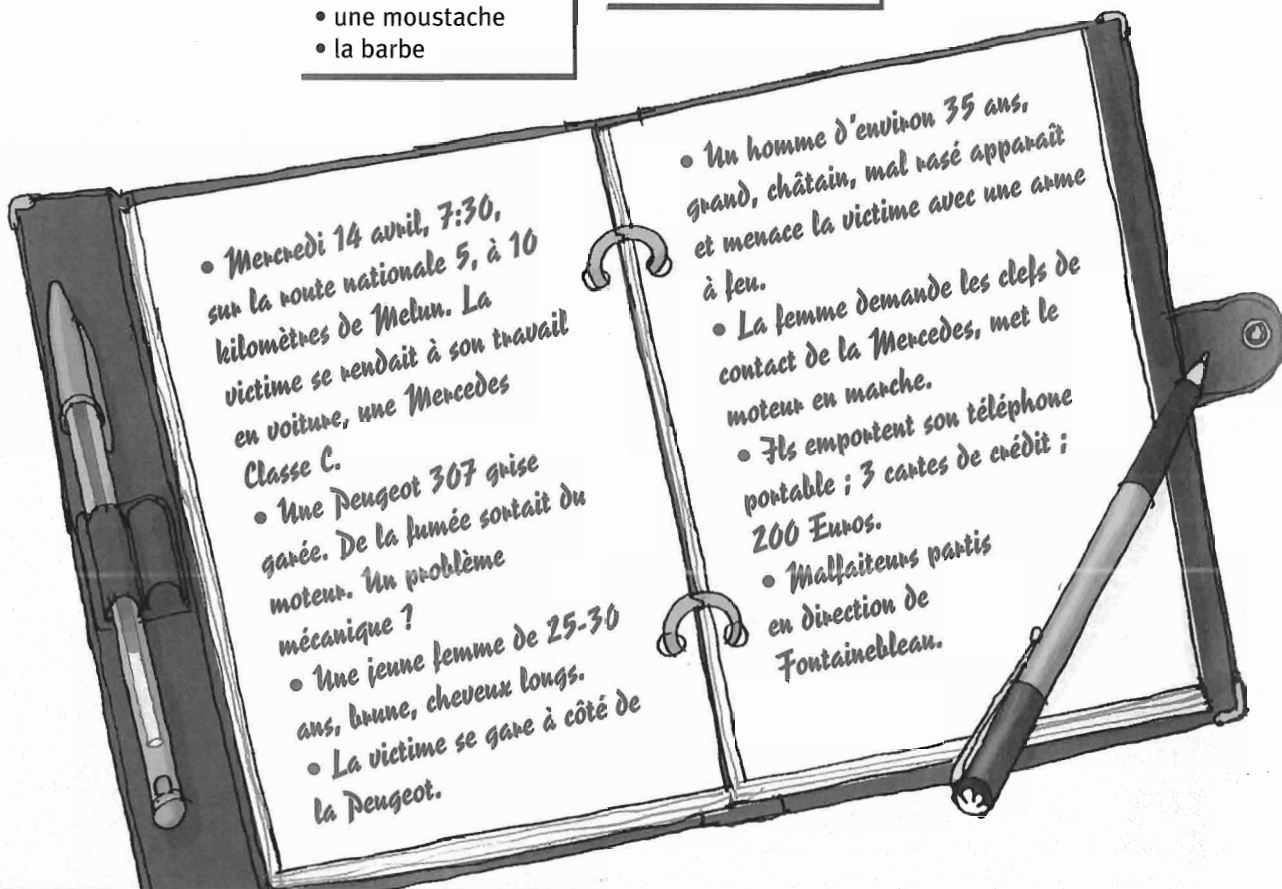 • une moustache
• la barbe
• Mercredi 14 avril, 7:30,
sur la route nationale 5, à 10
kilomètres de Melun. La
victime se rendait à son travail
en voiture, une Mercedes
Classe C.
• Une Peugeot 307 grise
garée. De la fumée sortait du
moteur. Un problème
mécanique ?
• Une jeune femme de 25-30
ans, brune, cheveux longs.
• La victime se gare à côté de
la Peugeot.
• Un homme d'environ 35 ans,
grand, châtain, mal rasé apparaît
et menace la victime avec une arme
à feu.
• La femme demande les clefs de
contact de la Mercedes, met le
moteur en marche.
• Ils emportent son téléphone
portable ; 3 cartes de crédit ;
200 Euros.
• Malfaiteurs partis
en direction de
Fontainebleau.